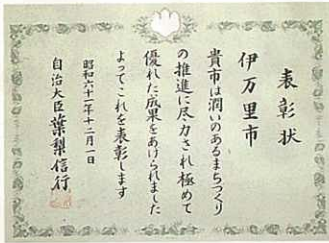 表彰状
伊万里市
貴市は潤いのあるまちづくり
の推進に尽力され極めて
優れた成果をあげられました
よってこれを表彰します
昭和六十二年十二月一日
自治大臣葉梨信行